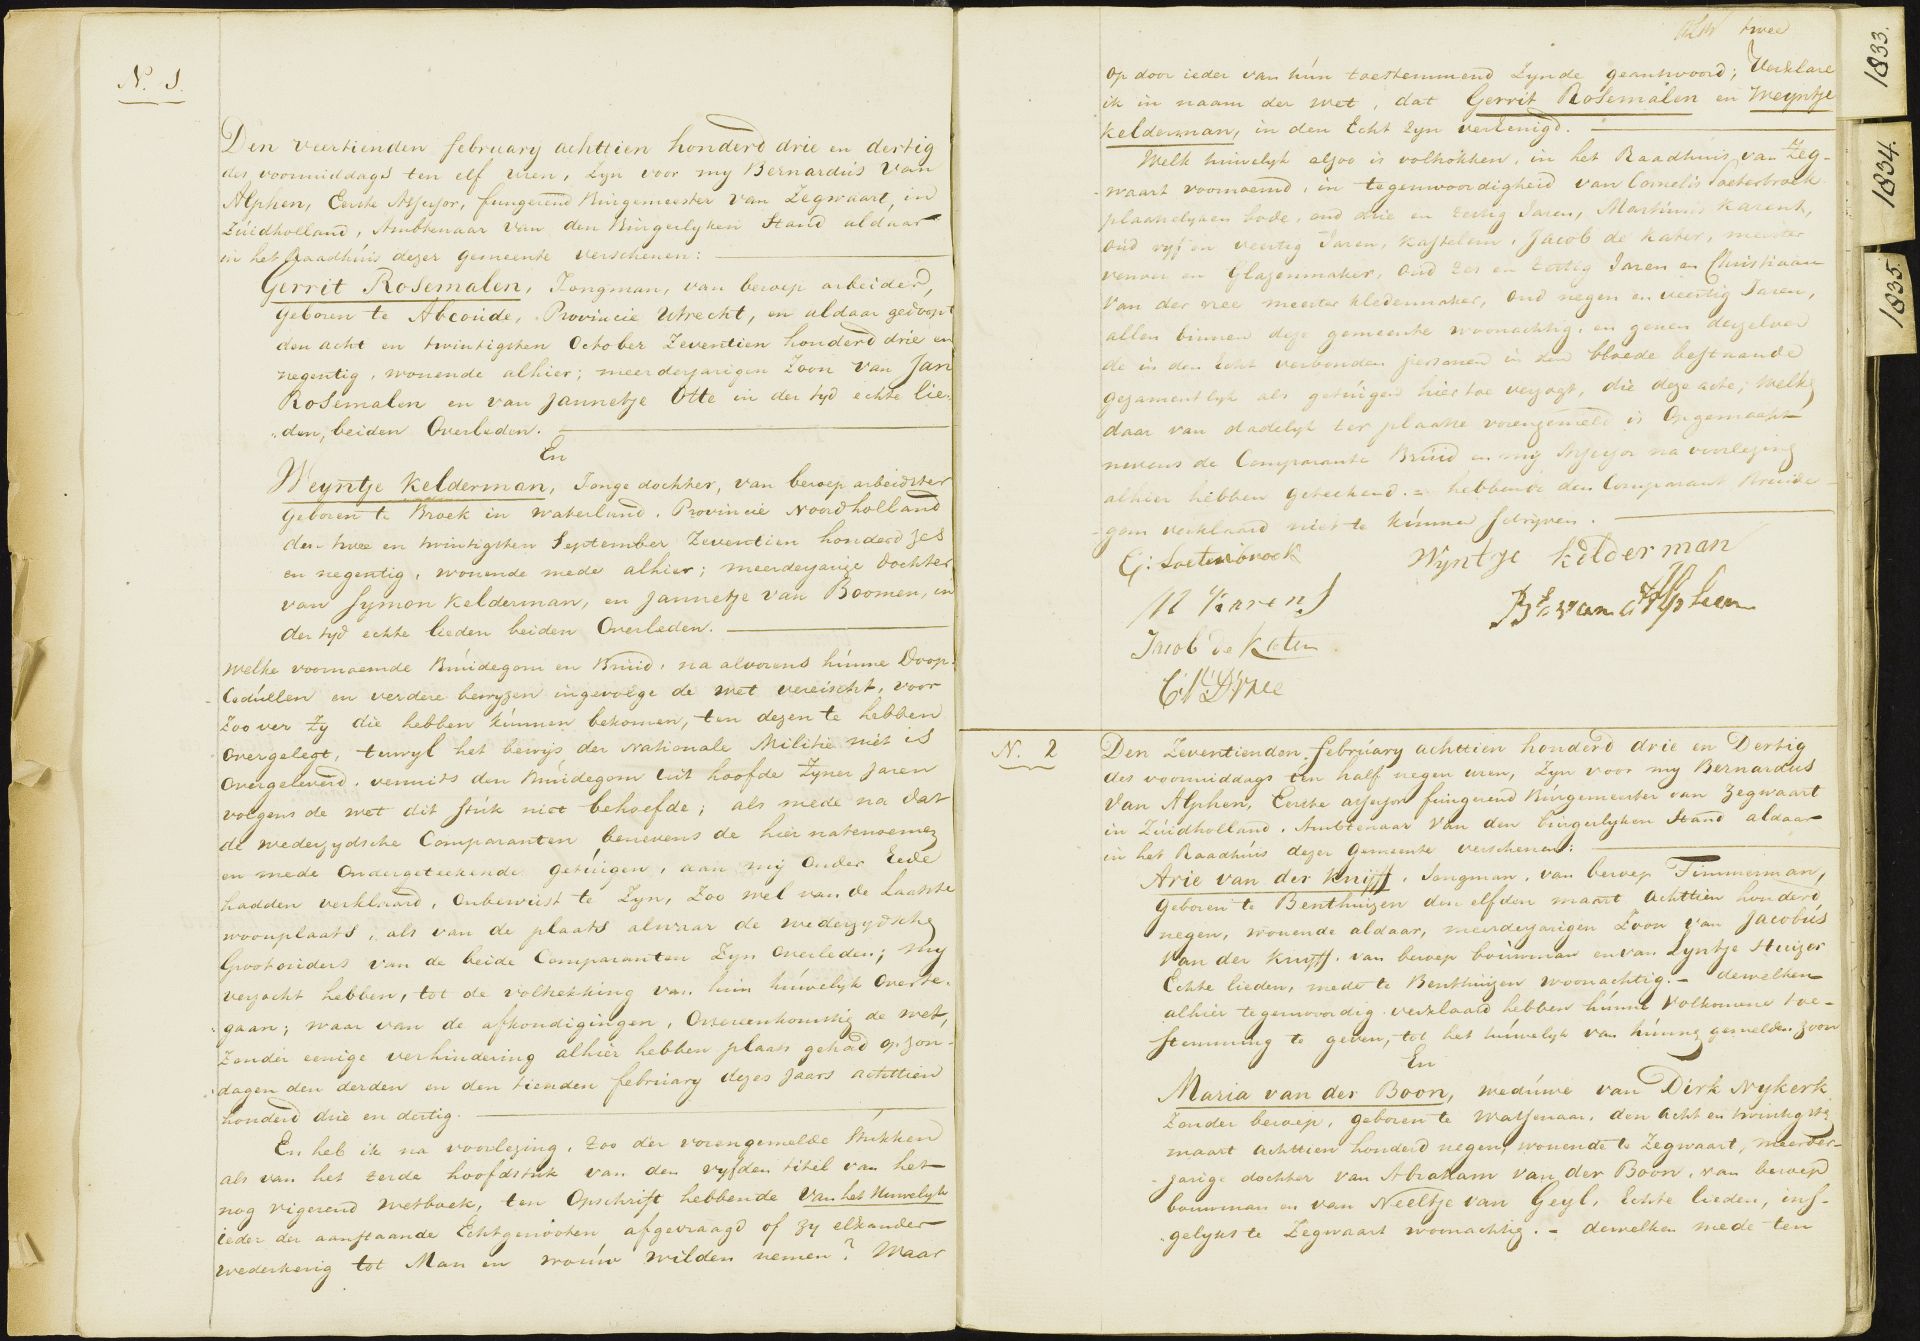 N. 1.
Den veertienden february achttien honderd drie en dertig
des voormiddags ten elf uren, Zyn voor my Bernardús Van
Alphen, Eerste Assessor, fungerend Búrgemeester van Zegwaart, in
Zúidholland, Ambtenaar van den Búrgerlyken Stand aldaar
in het Raadhúis dezer gemeente verschenen:
Gerrit Rosemalen, Jongman, van beroep arbeider,
geboren te Abcoúde, Provincie Utrecht, en aldaar gedoopt
den acht en twintigsten October Zeventien honderd drie en
negentig, wonende alhier; meerderjarigen Zoon van Jan
Rosemalen en van Jannetje Otte in der tyd echte lie-
den, beiden Overleden.
En
Weyntje Kelderman, Jonge dochter, van beroep arbeidster
geboren te Broek in Waterland, Provincie Noordholland
den twee en twintigsten September Zeventien honderd zes
en negentig, wonende mede alhier; meerderjarige dochter
van Symon Kelderman, en Jannetje van Boomen, in
der tyd echte lieden beiden Overleden.
Welke voornoemde Brúidegom en Brúid, na alvorens húnne Doop-
Cedúllen en verdere bewyzen ingevolge de wet vereischt, voor
Zoo ver Zy die hebben kúnnen bekomen, ten dezen te hebben
Overgelegt, terwyl het bewys der Nationale Militie niet is
Overgeleverd, vermits den Brúidegom uit hoofde Zyner Jaren
volgens de wet dit stúk niet behoefde; als mede na dat
de wederzydsche Comparanten benevens de hier natenoemen
en mede Ondergeteekende getúigen, aan my Onder Eede
hadden verklaard, Onbewust te Zyn, Zoo wel van de Laatste
woonplaats, als van de plaats alwaar de wederzydsche
Grootouders van de beide Comparanten Zyn Overleden; my
verzocht hebben, tot de voltrekking van hún húwelyk Overte-
gaan; waar van de afkondigingen, Overeenkomstig de wet,
Zonder eenige verhindering alhier hebben plaats gehad op zon-
dagen den derden en den tienden february dezes jaars achttien
honderd drie en dertig.
En heb ik na voorlezing, Zoo der vorengemelde Stúkken
als van het Zesde hoofdstuk van den vyfden titel van het
nog vigerend wetboek, ten Opschrift hebbende Van het Húwelyk
ieder der aanstaande Echtgenooten afgevraagd of zy elkander
wederkerig tot Man en Vrouw wilden nemen? Waar
twee
op door ieder van hún toestemmend Zynde geantwoord; Verklare
ik in naam der wet, dat Gerrit Rosemalen en Weyntje
Kelderman, in den Echt zyn vereenigd.
Welk húwelyk alzoo is voltrokken, in het Raadhúis van Zeg-
waart voornoemd, in tegenwoordigheid van Cornelis Soeterbroek
plaatselyken bode, oud drie en Zestig Jaren, Martinus Karens,
oud vyf en veertig Jaren, Kastelein, Jacob de Kater, meester
verver en Glazenmaker, Oud Zes en Zestig Jaren en Christiaan
Van der Vree meester kledermaker, Oud negen en veertig Jaren,
allen binnen deze gemeente woonachtig, en geenen derzelver
de in den Echt verbonden personen in den bloede bestaande
gezamentlyk als getúigen hier toe verzogt, die deze acte, welke
daar van dadelyk ter plaatse vorengemeld is Opgemaakt
nevens de Comparante Brúid en my Assessor na voorlezing
alhier hebben geteekend. = hebbende den Comparant Brúide-
gom verklaard niet te kúnnen schryven.
C: Soeterbroek
Wyntje Kelderman
M Karens
Bs. van Alphen
Jacob de Kater
C V D Vree
N. 2
Den Zeventienden february achttien honderd drie en Dertig
des voormiddags ten half negen uren, Zyn voor my Bernardús
Van Alphen, Eerste assessor fungerend Búrgemeester van Zegwaart
in Zúidholland, Ambtenaar Van den búrgerlyken Stand aldaar
in het Raadhúis dezer Gemeente verschenen:
Arie van der Knijff, Jongman, van beroep Timmerman,
Geboren te Benthuizen den elfden maart achttien honderd
negen, wonende aldaar, meerderjarigen Zoon van Jacobús
Van der Knijff, van beroep boúwman en van Lyntje Huizer
Echte lieden, mede te Benthuizen woonachtig. - dewelken
alhier tegenwoordig verklaard hebben húnne Volkomene toe-
stemming te geven, tot het húwelyk van húnne gemelden zoon
En
Maria van der Boon, wedúwe van Dirk Nykerk
Zonder beroep, geboren te Wassenaar, den acht en twintigste
maart achttien honderd negen, wonende te Zegwaart, meerder-
jarige dochter van Abraham van der Boon, van beroep
bouwman en van Neeltje van Geyl, Echte lieden, ins-
gelyks te Zegwaart woonachtig. - dewelken mede ten
1833.
1834.
1835.